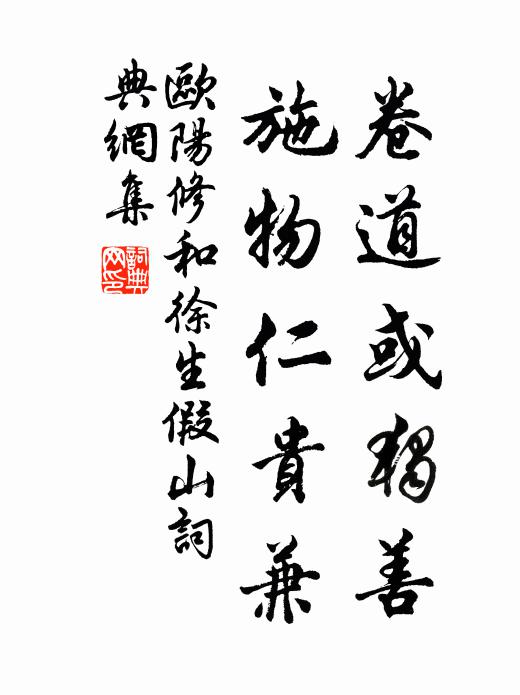 卷道或獨善
施物仁貴兼
歐陽修和徐生假山詞
典網集
詞典
网印